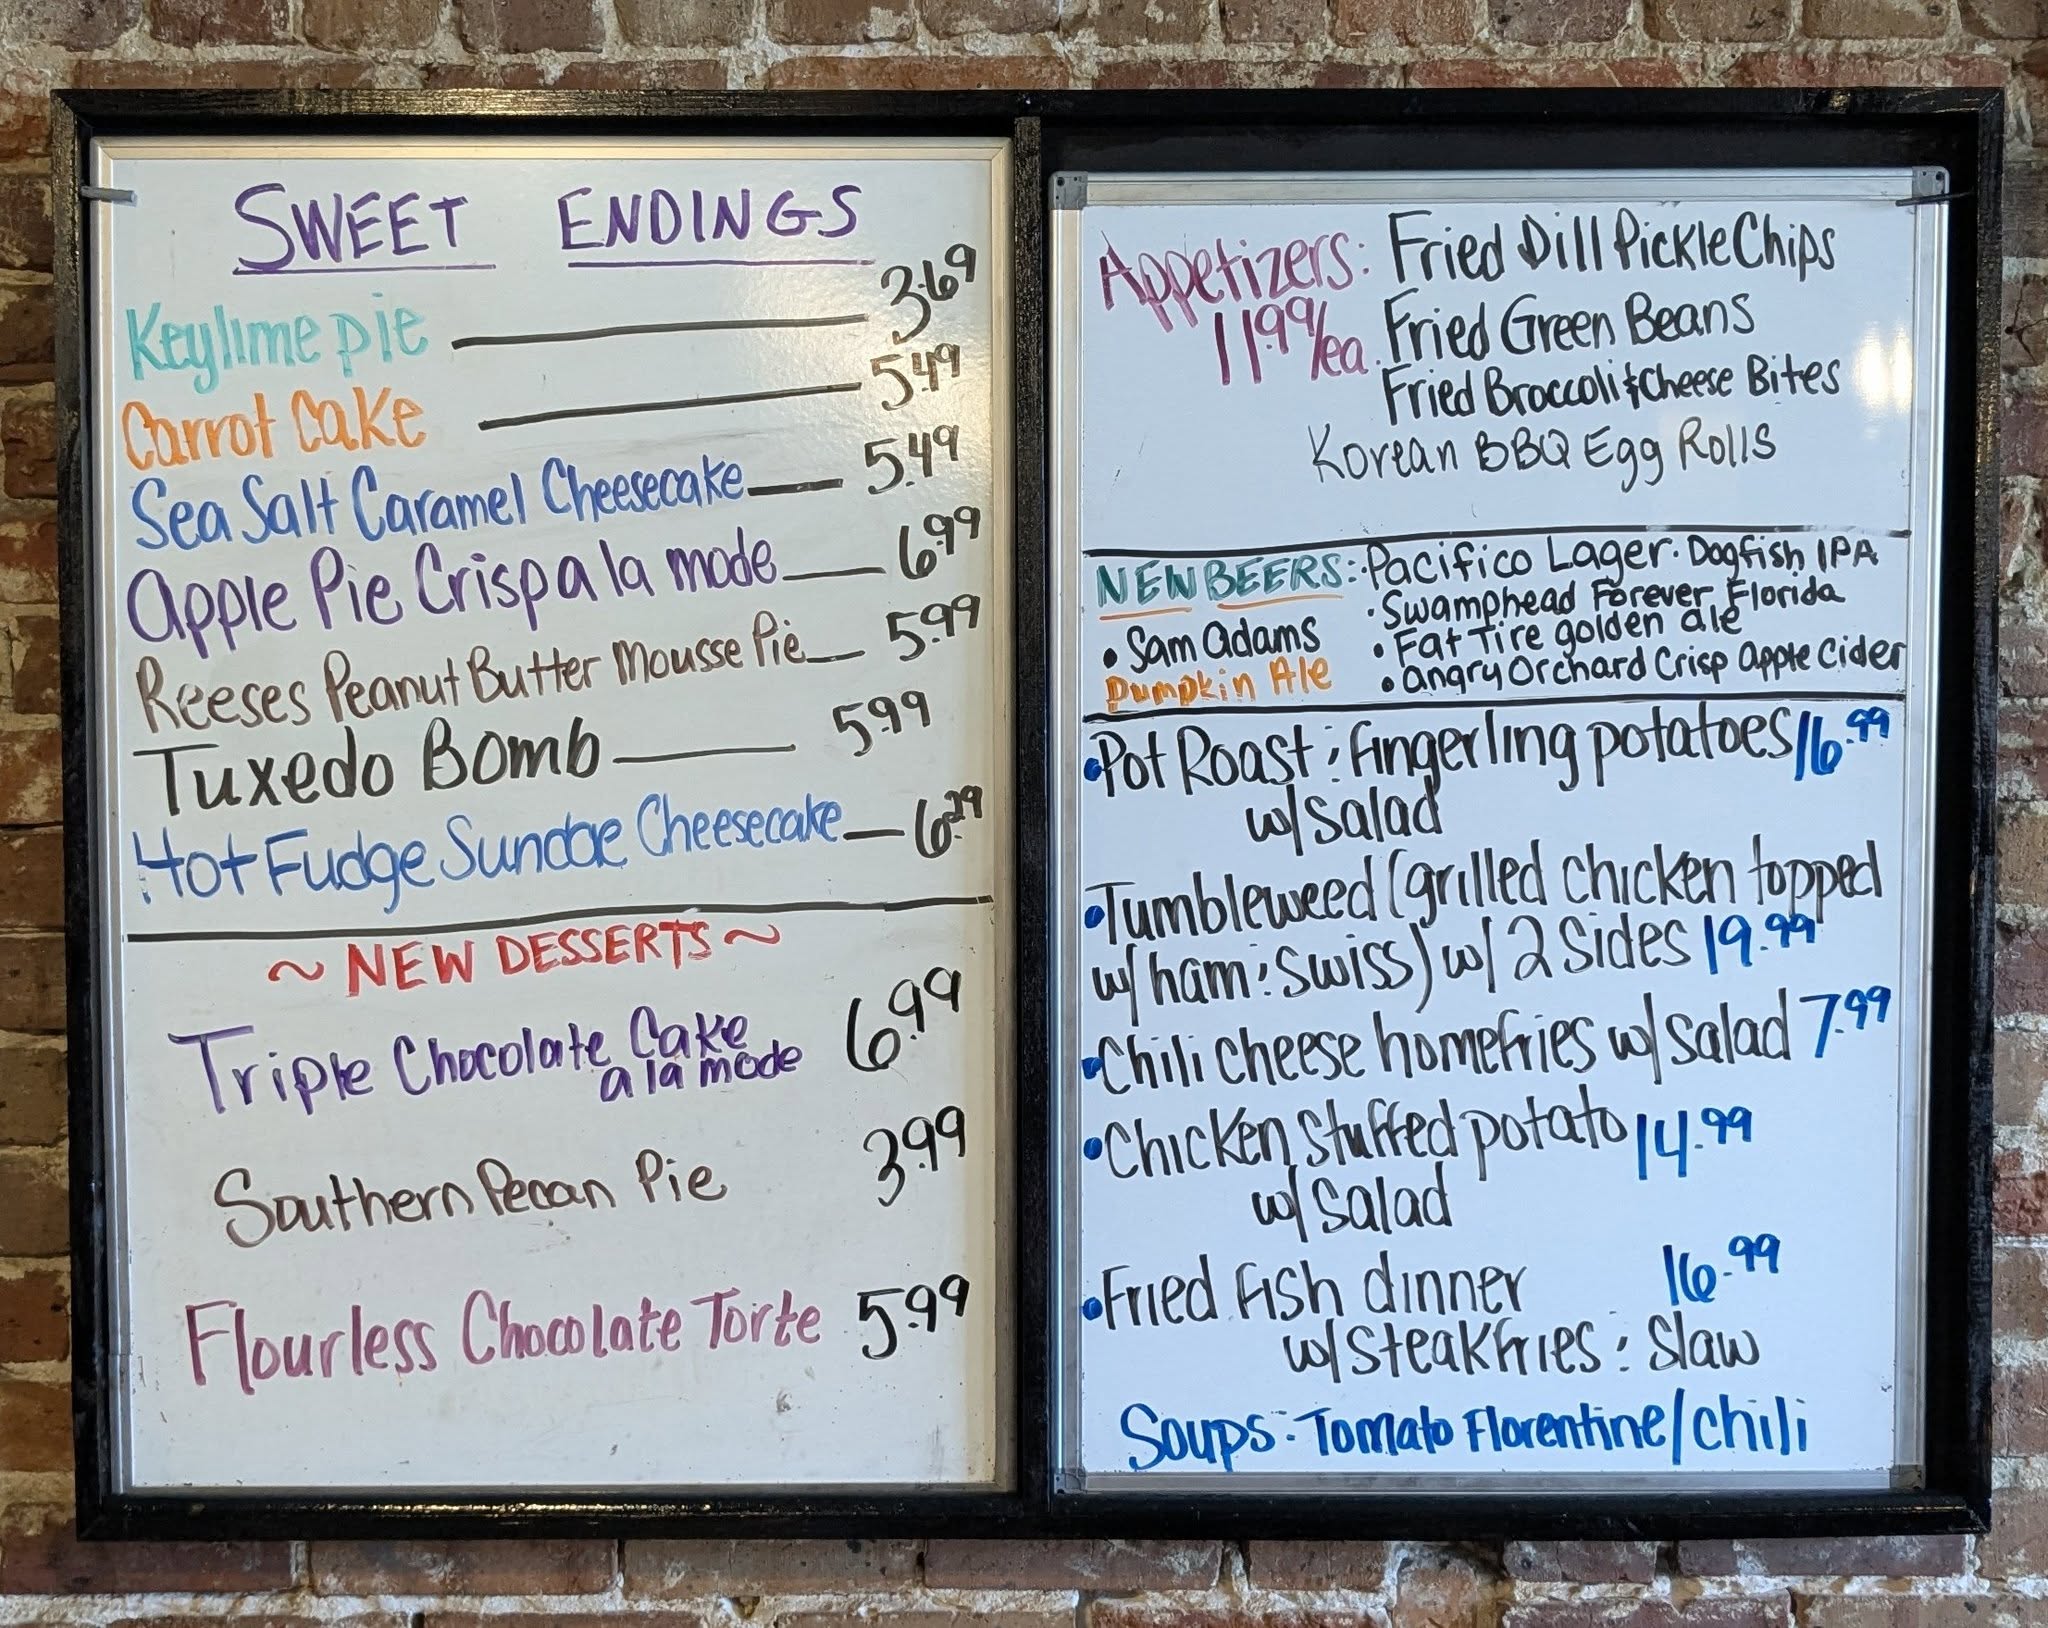 SWEET ENDINGS
Keylime pie 3.69
Carrot Cake 5.49
Sea Salt Caramel Cheesecake 5.49
Apple Pie Crisp a la mode 6.99
Reeses Peanut Butter Mousse Pie 5.99
Tuxedo Bomb 5.99
Hot Fudge Sundae Cheesecake 6.29
~ NEW DESSERTS ~
Triple Chocolate Cake 6.99
a la mode
Southern Pecan Pie 3.99
Flourless Chocolate Torte 5.99
Appetizers: Fried Dill Pickle Chips
11.99/ea. Fried Green Beans
Fried Broccoli & Cheese Bites
Korean BBQ Egg Rolls
NEW BEERS: • Pacifico Lager • Dogfish IPA
• Swamphead Forever Florida
• Sam Adams • Fat Tire golden ale
Pumpkin Ale • Angry Orchard Crisp Apple Cider
• Pot Roast : fingerling potatoes 16.99
w/ salad
• Tumbleweed (grilled chicken topped
w/ ham : swiss) w/ 2 sides 19.99
• Chili cheese homefries w/ salad 7.99
• Chicken stuffed potato 14.99
w/ salad
• Fried fish dinner 16.99
w/ steakfries : slaw
Soups: Tomato Florentine/chili